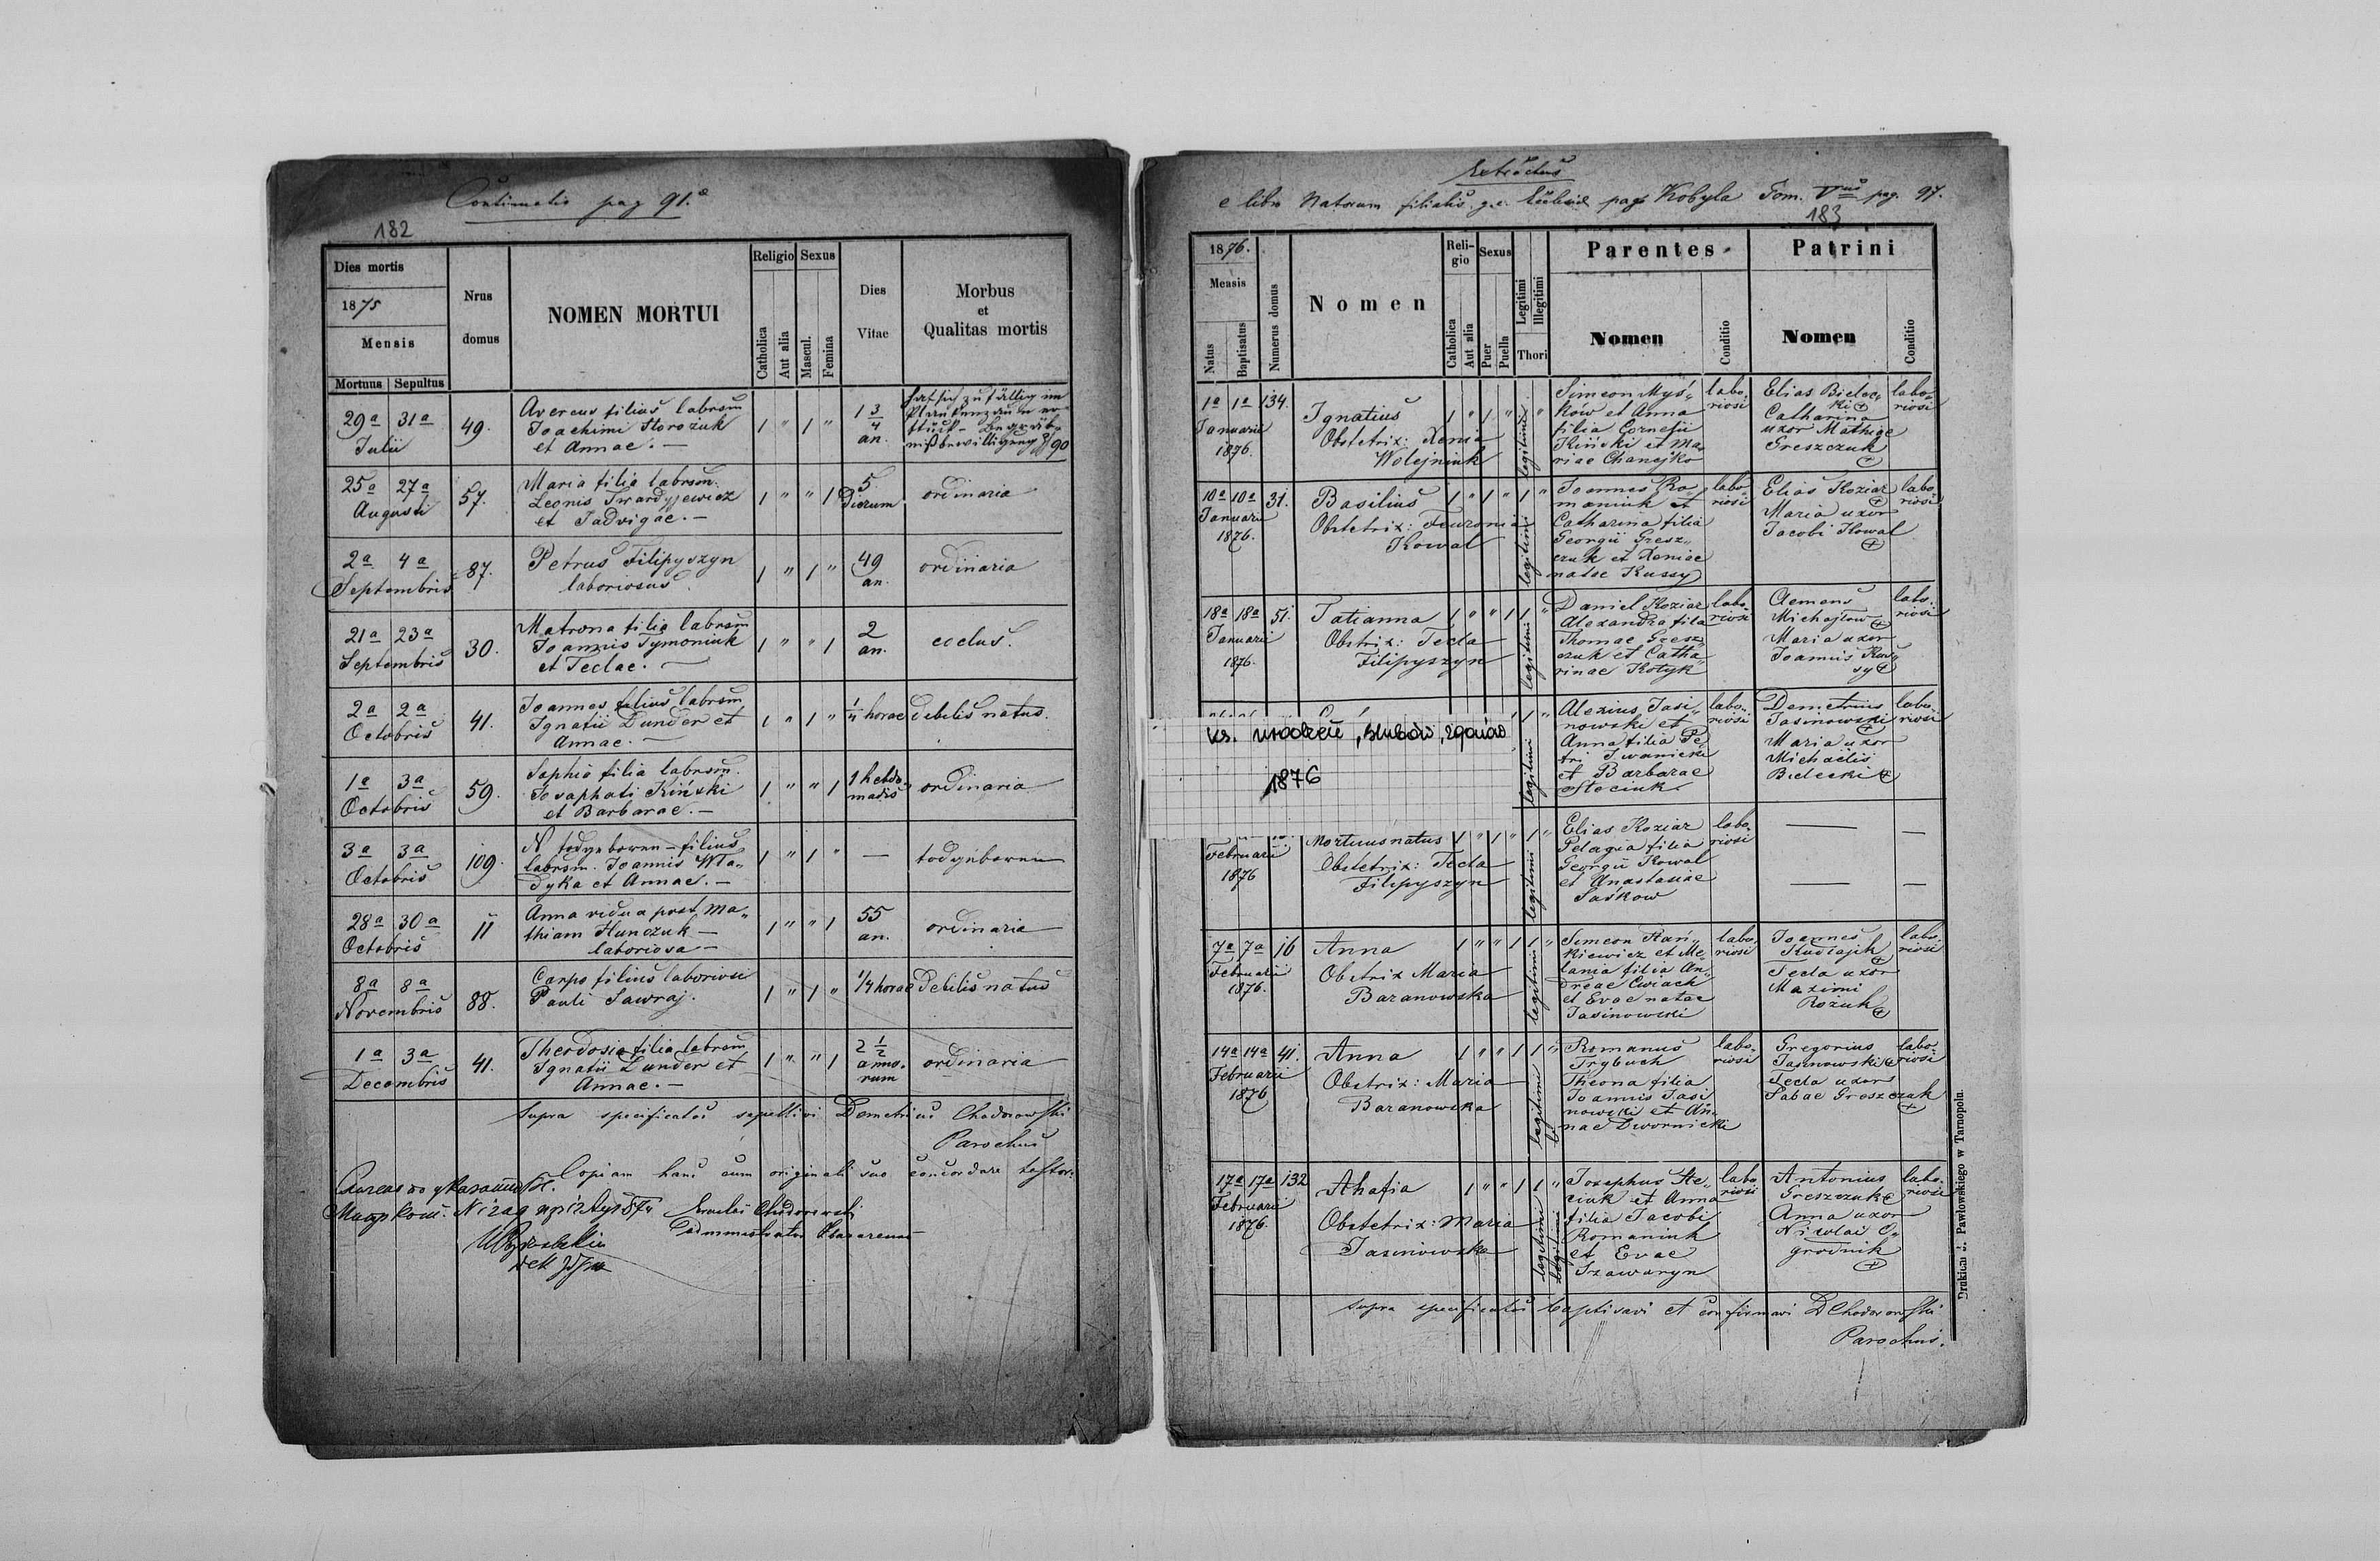 Continuatio pag 91.
182
Dies mortis
1875
Mensis
Mortuus Sepultus
Nrus domus
NOMEN MORTUI
Religio
Catholica
Aut alia
Sexus
Mascul.
Femina
Dies Vitae
Morbus
et
Qualitas mortis
29a 31a
Julii
49.
Avereus filius labrsm
Joachimi Storozuk
et Annae. —
1 " 1 "
1 3/4
an.
hat sich zufällig im
90
25a 27a
Augusti
57.
Maria filia labrsm.
Leonis Twardyjewicz
et Jadvigae. —
1 " " 1
5
Dierum
ordinaria
2a 4a
Septembris
87.
Petrus Filipyszyn
laboriosus.
1 " 1 "
49
an.
ordinaria
21a 23a
Septembris
30.
Matrona filia labrsm
Joannis Tymoniuk
et Teclae. —
1 " " 1
2
an.
2a 2a
Octobris
41.
Joannes filius labrsm
Ignatii Dunder et
Annae. —
1 " 1 "
1/4 horae
debilis natus.
1a 3a
Octobris
59.
Sophia filia labrsm.
Josaphati Kiński
et Barbarae. —
1 " " 1
1 hebdo-
madis
ordinaria
3a 3a
Octobris
109.
N todgeboren – filius
labrsm. Joannis Wła-
dyka et Annae. —
1 " 1 "
—
todgeboren
28a 30a
Octobris
11
Anna vidua post Ma-
thiam Hunczuk —
laboriosa —
1 " " 1
55
an.
ordinaria
8a 8a
Novembris
88.
Carpo filius laboriosi
Pauli Sawraj.
1 " 1 "
1/4 horae
Debilis natus
1a 3a
Decembris
41.
Theodosia filia labrsm
Ignatii Dunder et
Annae. —
1 " " 1
2 1/2
anno-
rum
ordinaria
Supra specificatos sepelivi Demetrius Chodorowski
Parochus
Copiam hanc cum originali suo concordare testor.
Chodorowski
Administrator
Extractus
e libro Natorum filialis g.c. Eccliae pagi Kobyla Tom. Vus pag. 97.
183
1876.
Mensis
Natus
Baptisatus
Numerus domus
Nomen
Religio
Catholica
Aut alia
Sexus
Puer
Puella
Legitimi
Illegitimi
Thori
Parentes
Nomen
Conditio
Patrini
Nomen
Conditio
1a 1a 134.
Januarii
1876.
Ignatius
Obstetrix: Xenia
Wolejniuk
1 " 1 "
legitimi
Simeon Myś-
ków et Anna
filia Cornelii
Kiński et Ma-
riae Chanejko
labo-
riosi
Elias Bielec-
ki
Catharina
uxor Mathiae
Greszczuk
labo-
riosi
10a 10a 31.
Januarii
1876.
Basilius
Obstetrix: Feuronia
Kowal
1 " 1 " 1 "
legitimi
Joannes Ro-
maniuk et
Catharina filia
Georgii Gresz-
czuk et Xeniae
natae Kussy
labo-
riosi
Elias Koziar
Maria uxor
Jacobi Kowal
labo-
riosi
18a 18a 51.
Januarii
1876.
Tatianna
Obstrix: Tecla
Filipyszyn
1 " " 1 1 "
legitimi
Daniel Koziar
Alexandra filia
Thomae Gresz-
czuk et Catha-
rinae Kotyk
labo-
riosi
Clemens
Michajłow
Maria uxor
Joannis Kus-
sy
labo-
riosi
ks. urodzeń, ślubów, zgonów
1876
1 "
legitimi
Alexius Jasi-
nowski et
Anna filia Pe-
tri Iwanicki
et Barbarae
Steciuk
labo-
riosi
Demetrius
Jasinowski
Maria uxor
Michaëlis
Bielecki
labo-
riosi
Februarii
1876
Mortuus natus
Obstetrix: Tecla
Filipyszyn
1 " 1 " 1 "
legitimi
Elias Koziar
Pelagia filia
Georgii Kowal
et Anastasiae
Saśkow
labo-
riosi
7a 7a 16
Februarii
1876.
Anna
Obstrix Maria
Baranowska
1 " " 1 1 "
legitimi
Simeon Stań-
kiewicz et Me-
lania filia An-
dreae Ćwiach
et Evae natae
Jasinowski
labo-
riosi
Joannes
Kudlajik
Tecla uxor
Maximi
Rożuk
labo-
riosi
14a 14a 41.
Februarii
1876
Anna
Obstrix: Maria
Baranowska
1 " " 1 1 "
legitimi
Romanus
Trybuch
Theona filia
Joannis Jasi-
nowski et An-
nae Dwornicki
labo-
riosi
Gregorius
Jasinowski
Tecla uxor
Sabae Greszczuk
labo-
riosi
17a 17a 132
Februarii
1876.
Ahafia
Obstetrix: Maria
Jasinowska
1 " " 1 1 "
legitimi
Josephus Ste-
ciuk et Anna
filia Jacobi
Romaniuk
et Evae
Szawaryn
labo-
riosi
Antonius
Greszczuk
Anna uxor
Nicolai O-
grodnik
labo-
riosi
Supra specificatos baptisavi et confirmavi DChodorowski
Parochus.
Drukiem J. Pawłowskiego w Tarnopolu.